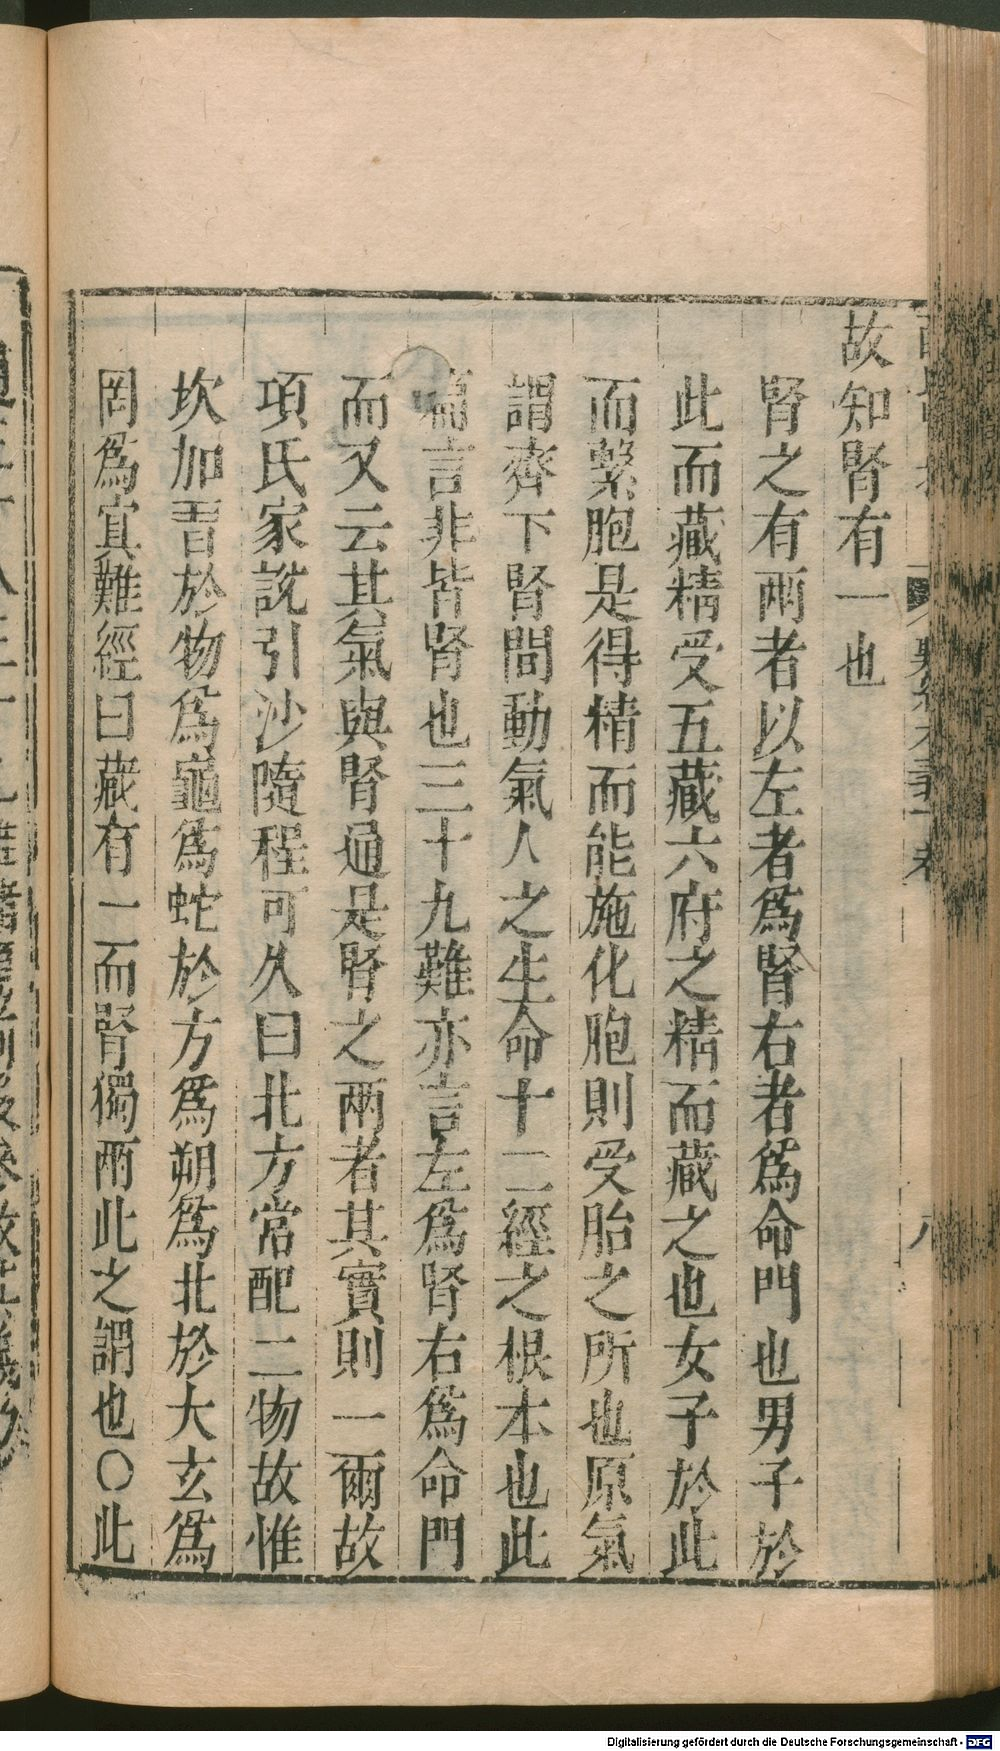 故知腎有一也
腎之有兩者以左者為腎右者為命門也男子於
此而藏精受五藏六府之精而藏之也女子於此
而繫胞是得精而能施化胞則受胎之所也原氣
謂齊下腎間動氣人之生命十二經之根本也此
篇言非皆腎也三十九難亦言左為腎右為命門
而又云其氣與腎通是腎之兩者其實則一爾故
項氏家說引沙隨程可久曰北方常配二物故惟
坎加習於物為龜為蛇於方為朔為北於大玄為
罔為冥難經曰藏有一而腎獨兩此之謂也○此
Digitalisierung gefördert durch die Deutsche Forschungsgemeinschaft - DFG